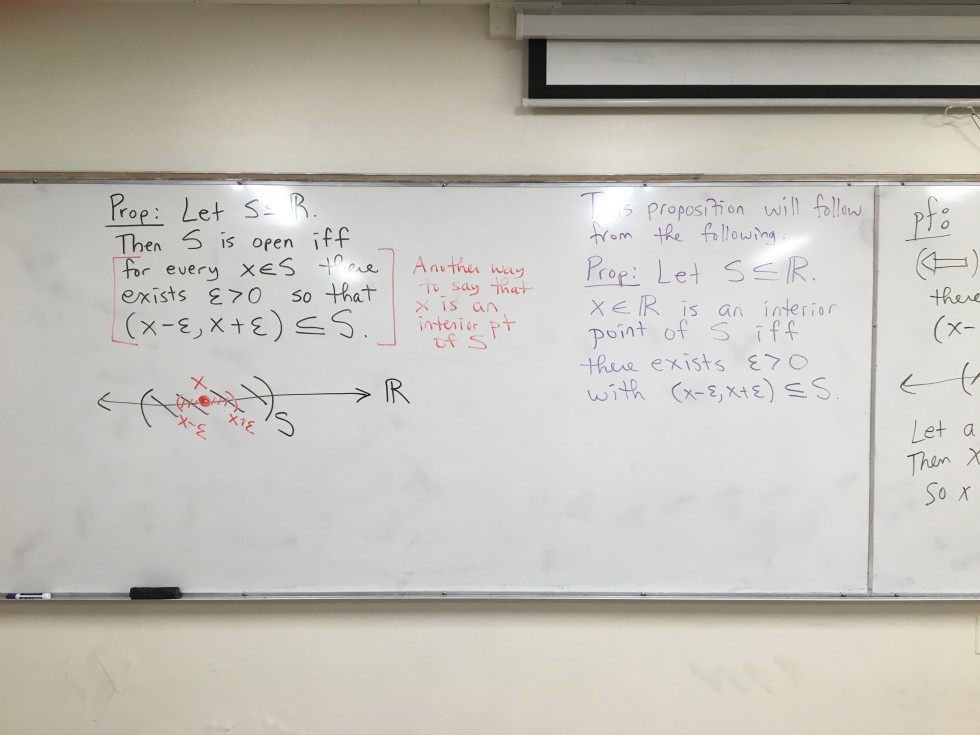 Prop: Let S ⊆ ℝ.
Then S is open iff
for every x∈S there
exists ε>0 so that
(x-ε, x+ε) ⊆ S.
Another way
to say that
x is an
interior pt
of S
x
x-ε
x+ε
S
ℝ
This proposition will follow
from the following.
Prop: Let S ⊆ ℝ.
x∈ℝ is an interior
point of S iff
there exists ε>0
with (x-ε, x+ε) ⊆ S.
pf:
(⇐)
there
(x-
Let a
Then x
So x